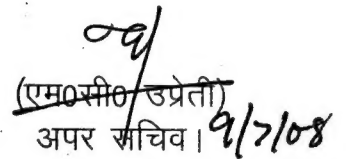 (एम०सी० उप्रेती)
अपर सचिव। 9/7/08